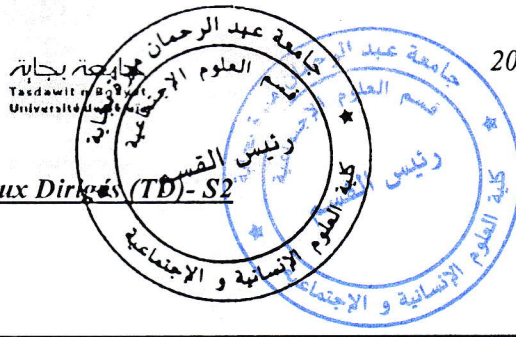 20
جامعة بجاية
Tasdawit n Bgayet
Université de
ux Dirigés (TD)- S2
جامعة عبد الرحمان
قسم العلوم الإجتماعية
رئيس القسم
كلية العلوم الإنسانية و الإجتماعية
جامعة عبد الرحمان
بجاية
قسم العلوم الإجتماعية
رئيس القسم
كلية العلوم الإنسانية و الإجتماعية